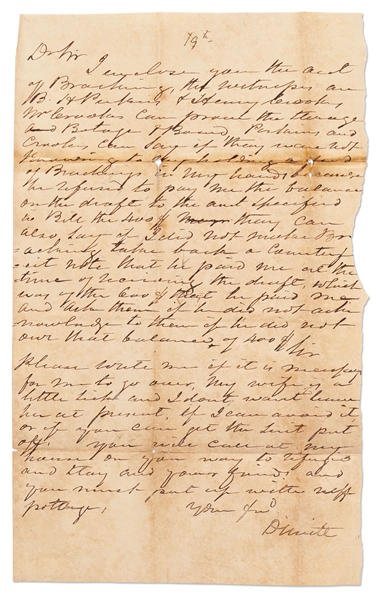 79th
Dr Sir
I inclose you the act
of Brashing, the witnesses are
B. H Perkins & Henry Crooks
Mr Crooks can prove the
and of Board, Perkins and
Crooks can say if they was not
in my hands because
he refused to pay me the balance
on the draft to the amt specified
as Bill the 400$ they can
also, say if I did not make Br
take back a Country
note that he paid me at the
time of receiving the draft, which
was of the 600$ that he paid me
and ask them if he did not ack
nowledge to them if he did not
owe that balance of 400$ Sir
Please write me if it is necessary
for me to go over, my wife is a
little sick and I dont want leave
her at present, if I can avoid it
or if you can get the suit put
off, you will call at my
house on you way to
and stay and your friends and
you must put up with
pottage, your frd